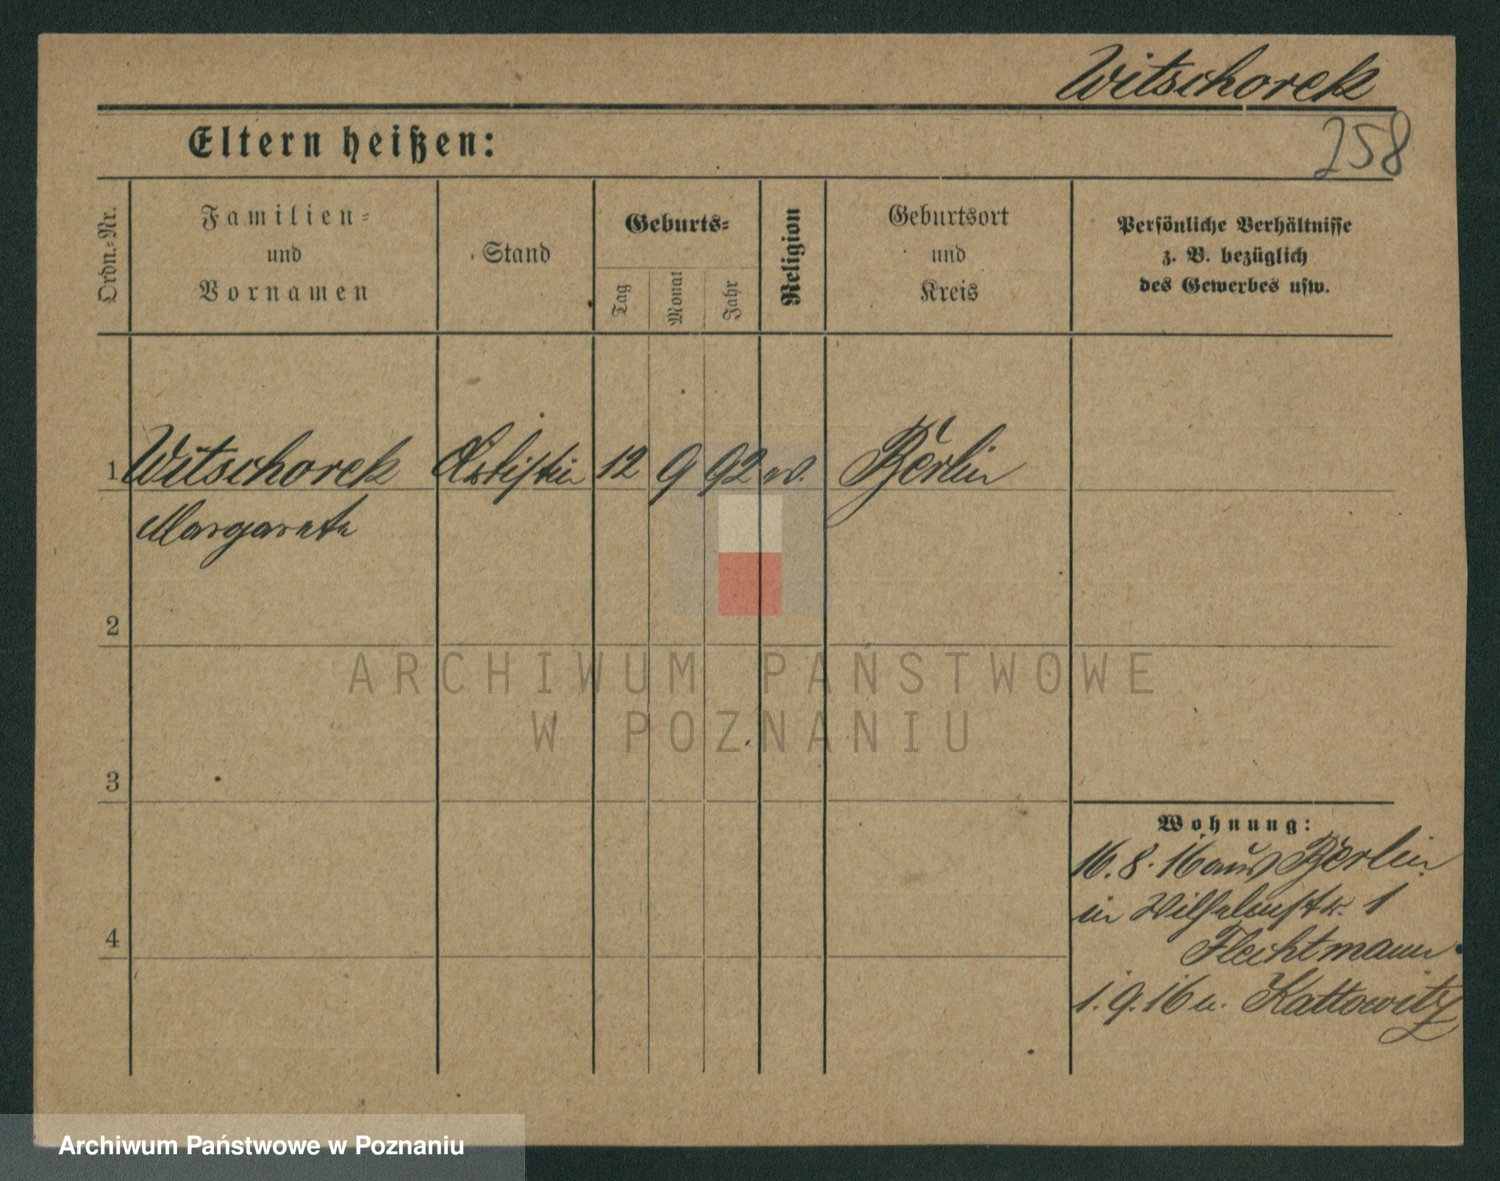 Witschorek
258
Eltern heißen:
Ordn.=Nr.
Familien=
und
Vornamen
Stand
Geburts=
Tag
Monat
Jahr
Religion
Geburtsort
und
Kreis
Persönliche Verhältnisse
z. B. bezüglich
des Gewerbes usw.
1 Witschorek Artistin 12 9 92 Berlin
Margarete
2
3
4
Wohnung:
16.8.16 aus Berlin
in Wilhelmstr. 1
Flechtmann
1.9.16 n. Kattowitz
ARCHIWUM PAŃSTWOWE
W POZNANIU
Archiwum Państwowe w Poznaniu